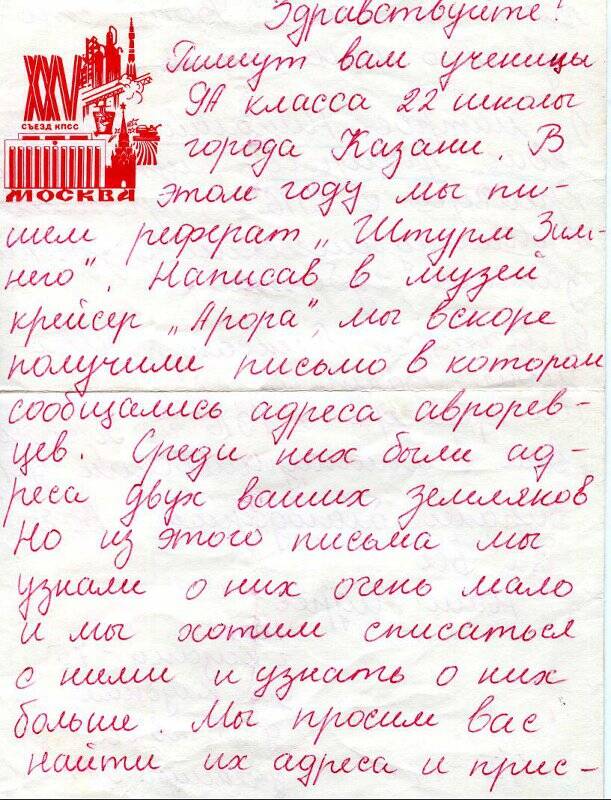 Здравствуйте!
XXV
СЪЕЗД КПСС
МОСКВА
Пишут вам ученицы
9А класса 22 школы
города Казани. В
этом году мы пи-
шем реферат „Штурм Зим-
него". Написав в музей
крейсер „Арора", мы вскоре
получили письмо в котором
сообщались адреса авроров-
цев. Среди них были ад-
реса двух ваших земляков
Но из этого письма мы
узнали о них очень мало
и мы хотим списаться
с ними и узнать о них
больше. Мы просим вас
найти их адреса и прис-